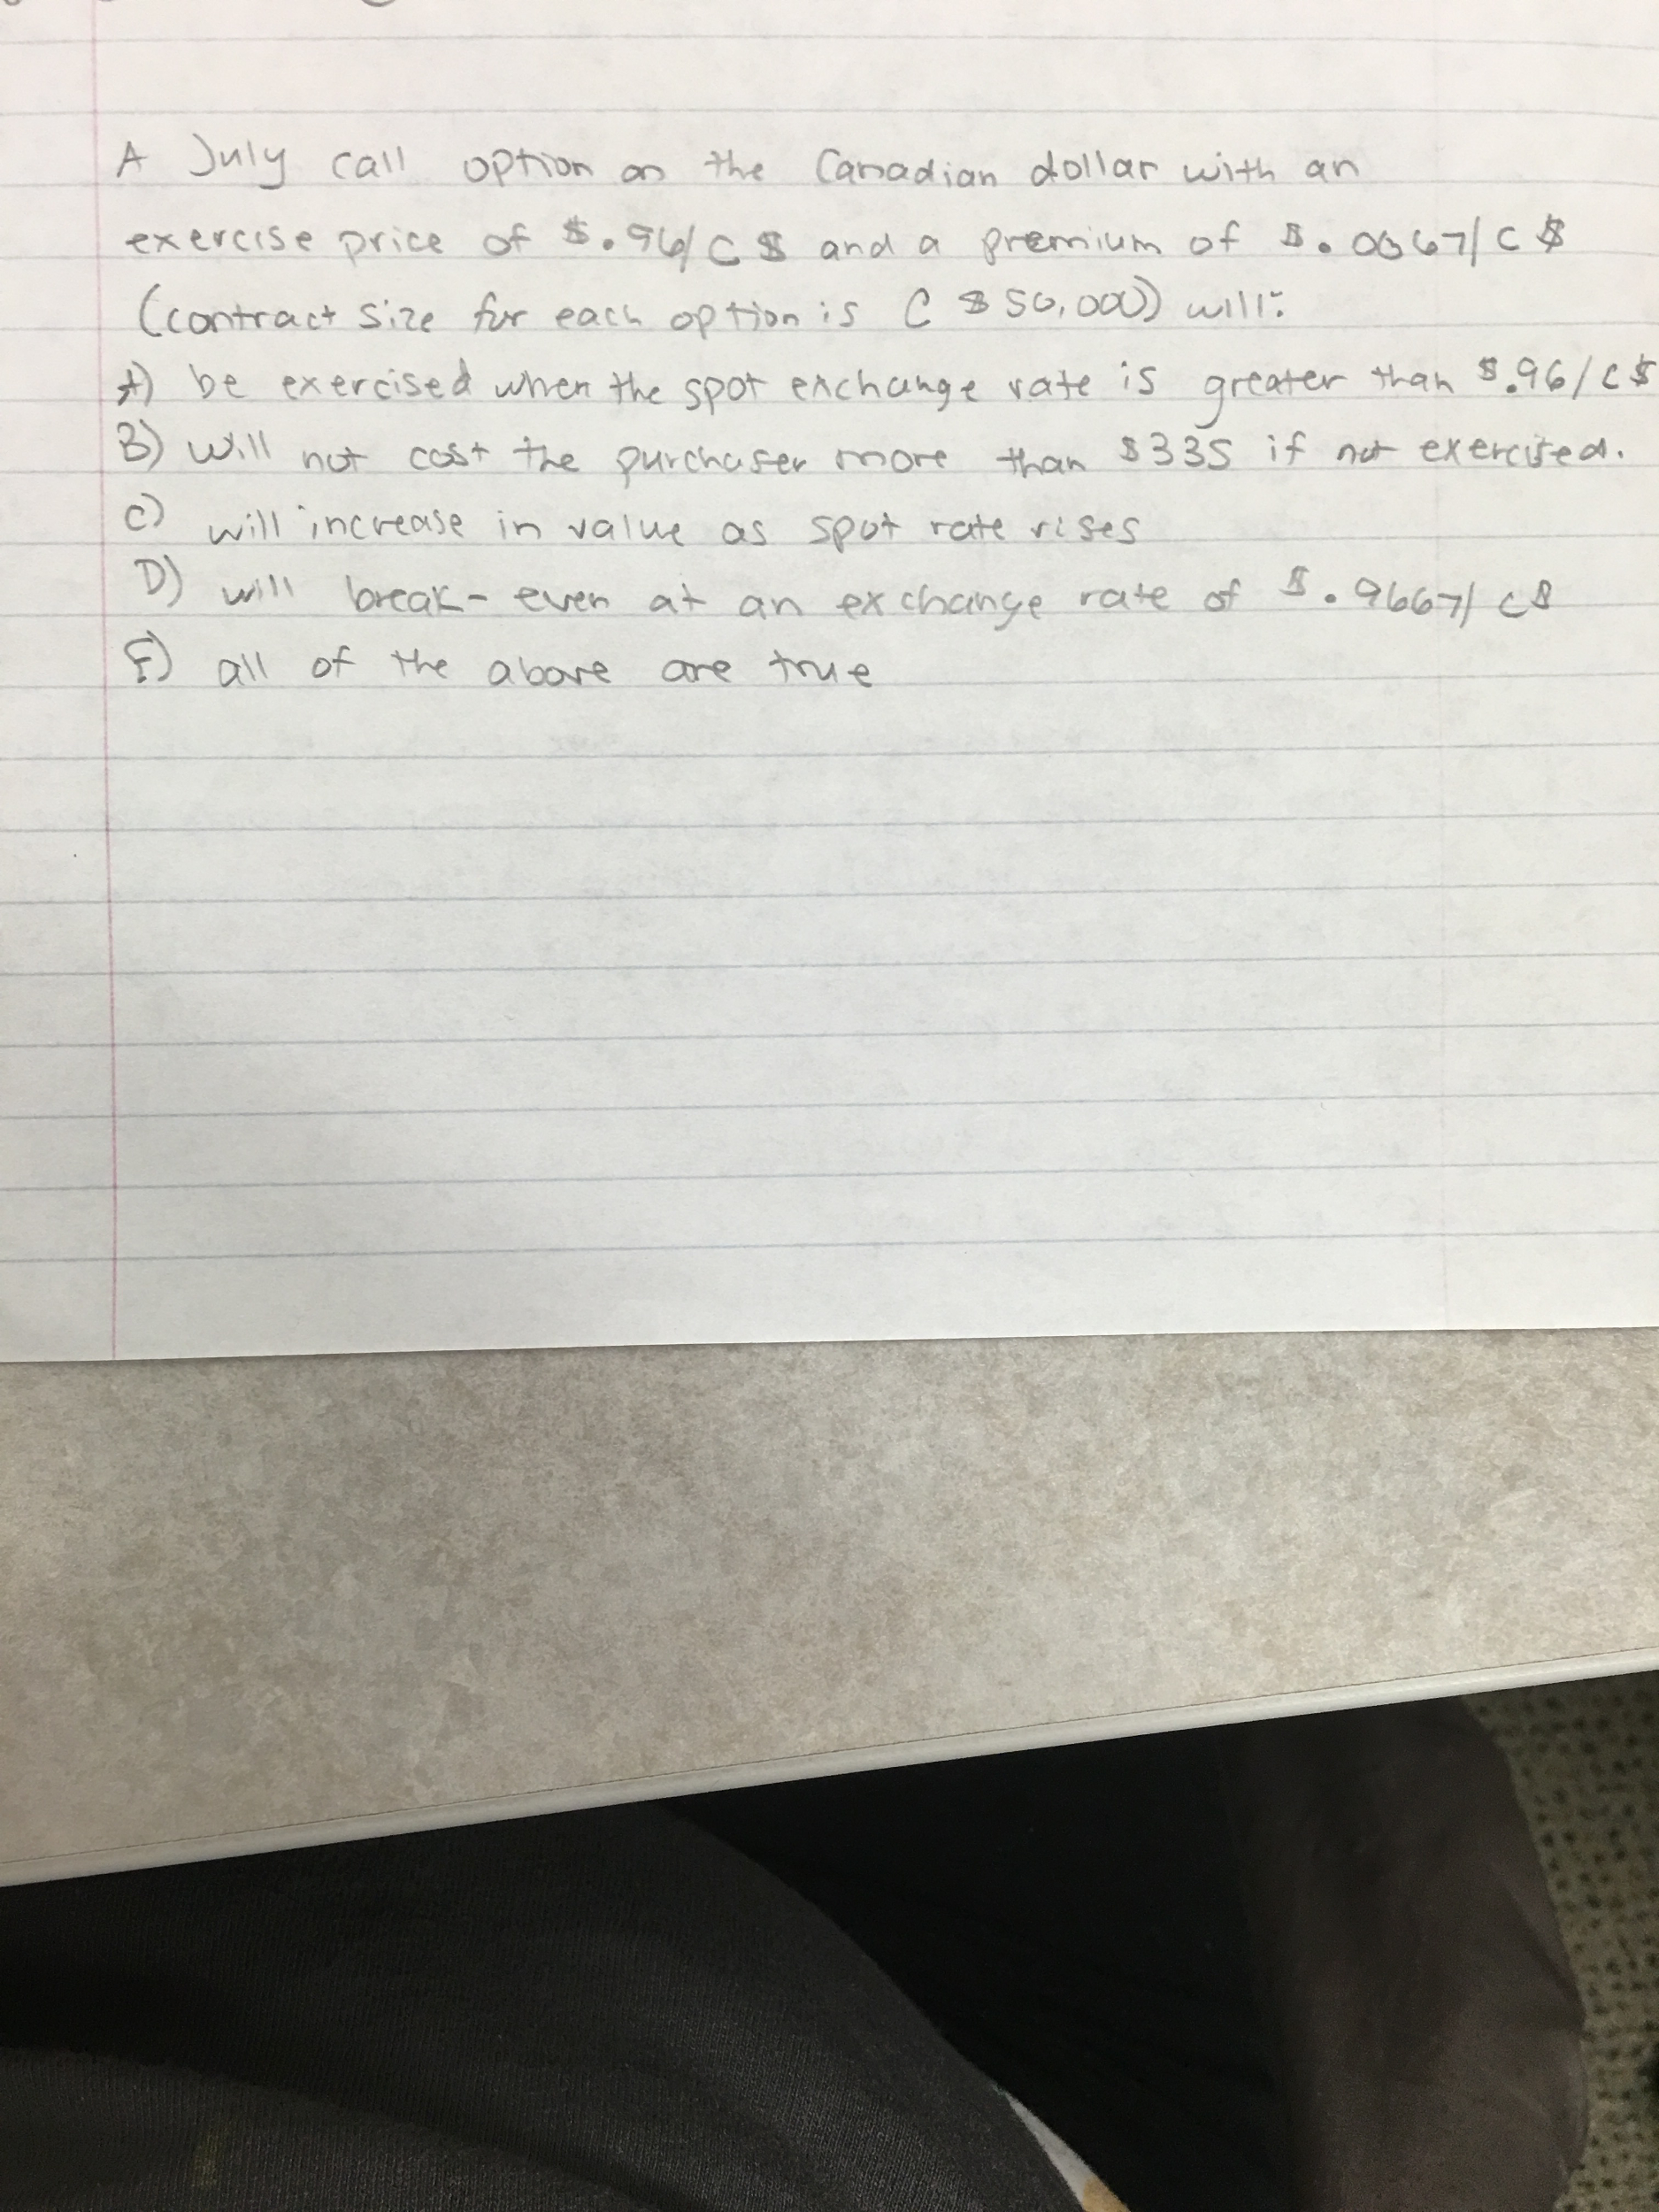 A July call option on the Canadian dollar with an
exercise price of $.96/C$ and a premium of $.0067/C$
(contract size for each option is C$50,000) will:
A) be exercised when the spot exchange rate is greater than $.96/C$
B) will not cost the purchaser more than $335 if not exercised.
C) will increase in value as spot rate rises
D) will break-even at an exchange rate of $.9667/C$
E) all of the above are true